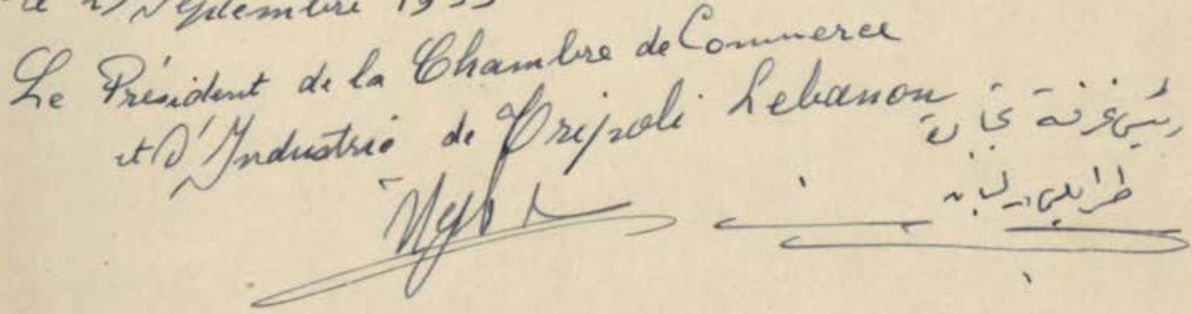 Septembre
Le Président de la Chambre de Commerce
et d'Industrie de Tripoli Lebanon
رئيس غرفة تجارة
طرابلس لبنان